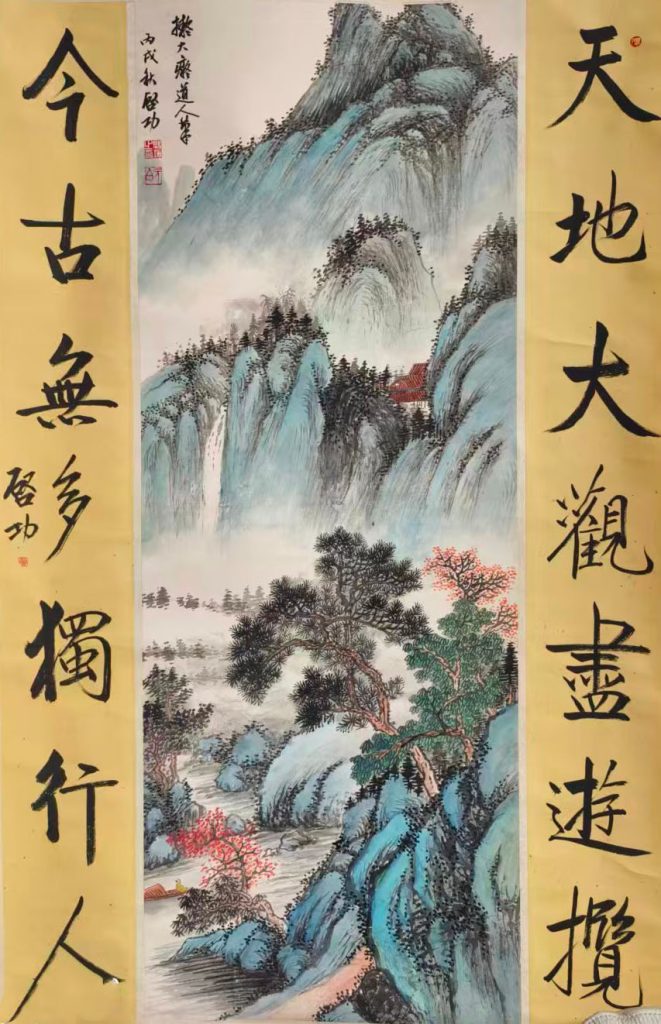 天地大觀盡遊攬
橅大癡道人筆
丙戌秋啓功
今古無多獨行人
啓功